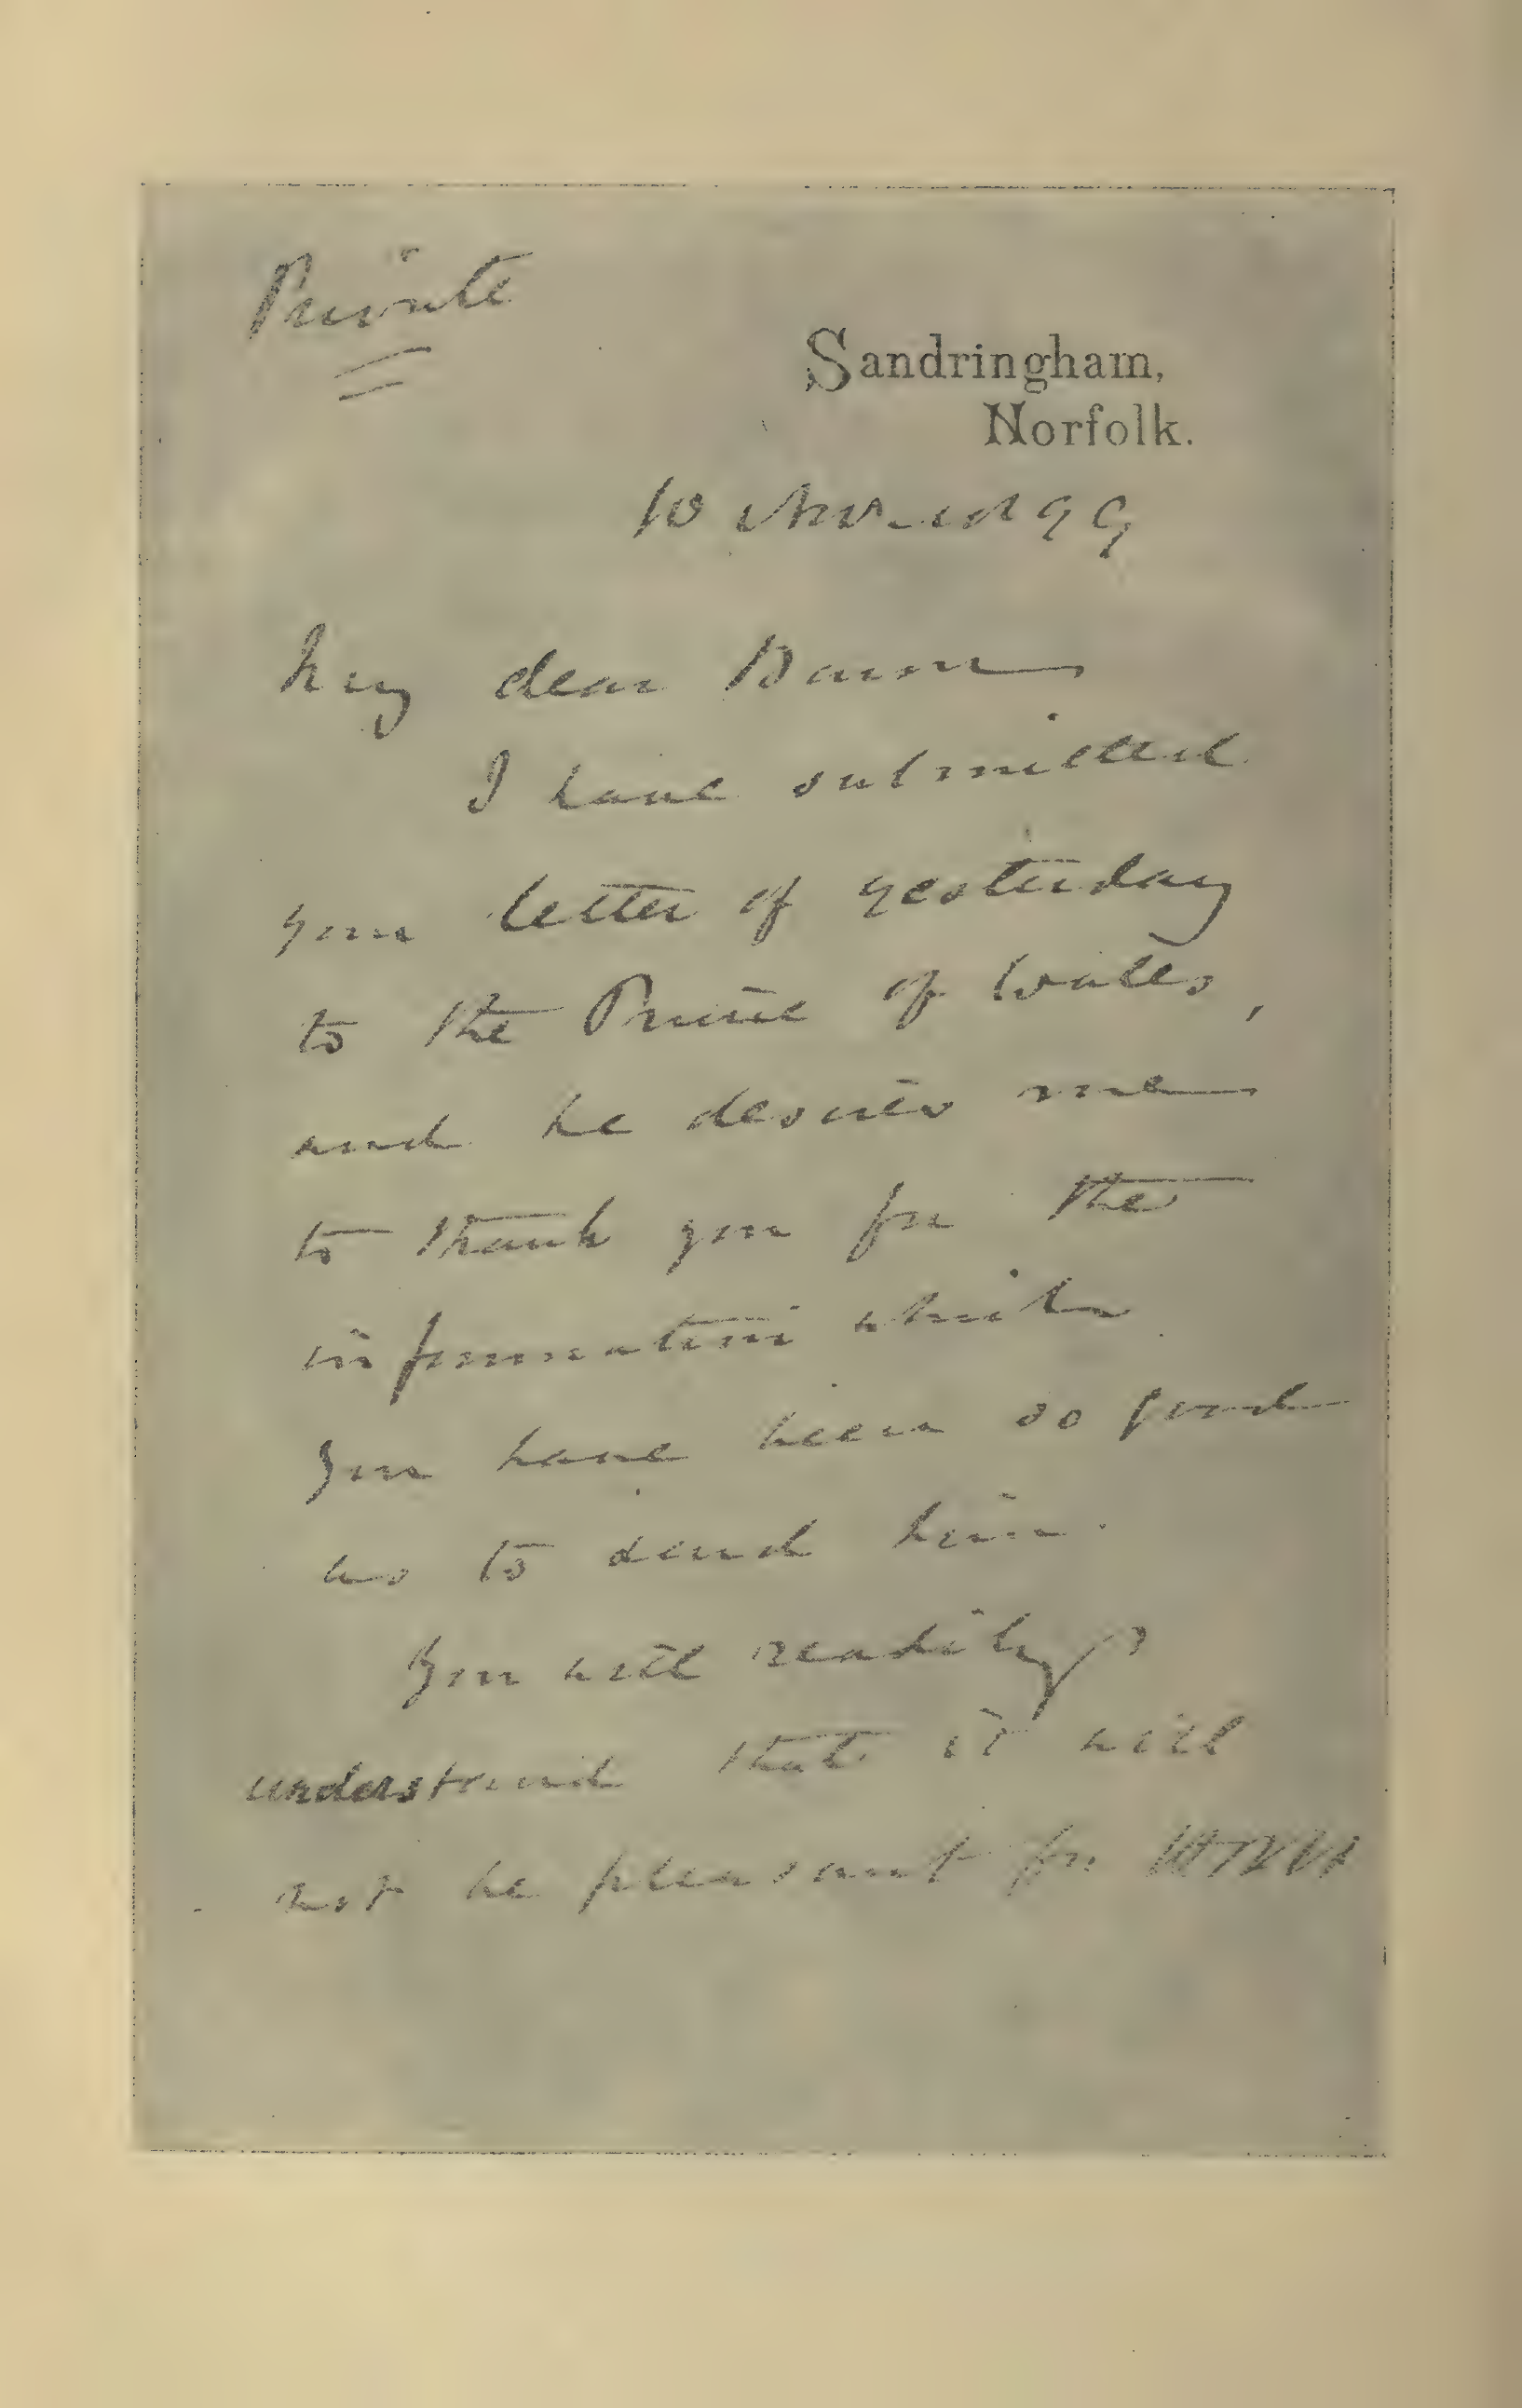 Private
Sandringham,
Norfolk.
10 Nov. 1899
My dear Baron
I have submitted
your letter of yesterday
to the Prince of Wales,
and he desires me
to thank you for the
information which
you have been so good
as to send him.
You will readily
understand that it will
not be pleasant for HRH